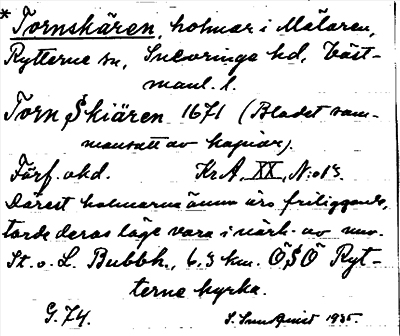 * Tornskären, holmar i Mälaren,
Rytterne sn, Snevringe hd, Väst-
manl. l.
Torn Skiären 1671 (Bladet sam-
mansatt av kopior).
Förf. okd. KrA, XX, N:o 13.
Därest holmarna ännu äro friliggande,
torde deras läge vara i närh. av nuv.
St. o. L. Bubbh., 6.3 km. ÖSÖ Ryt-
terne kyrka.
G. 74. S. Sundquist 1935.